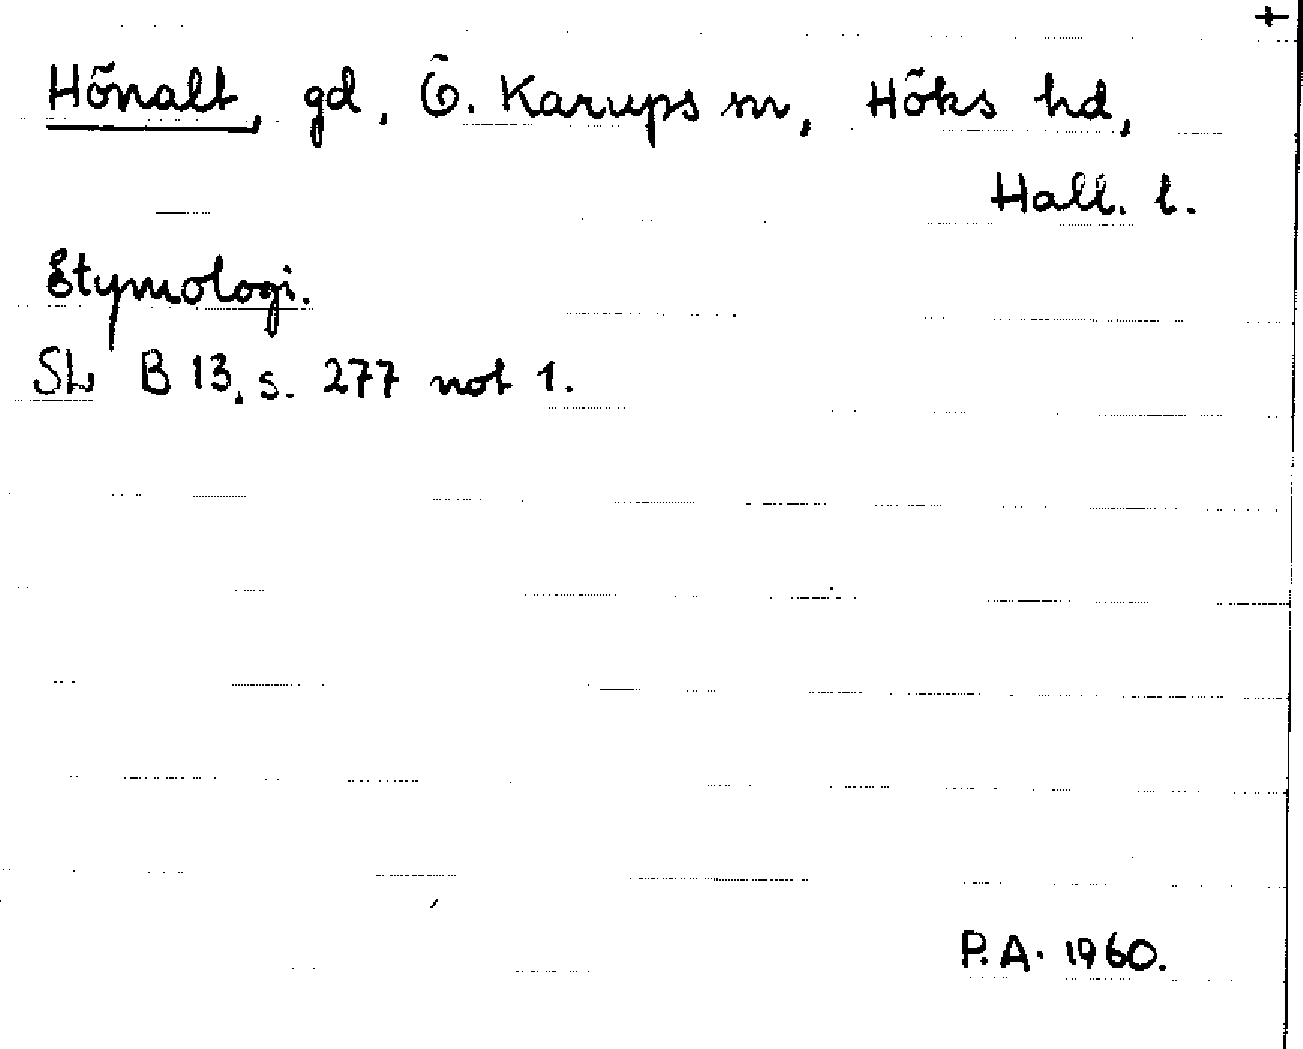 +
Hönalt, gd, Ö. Karups sn, Höks hd,
Hall. l.
Etymologi.
SL B 13, s. 277 not 1.
P.A. 1960.